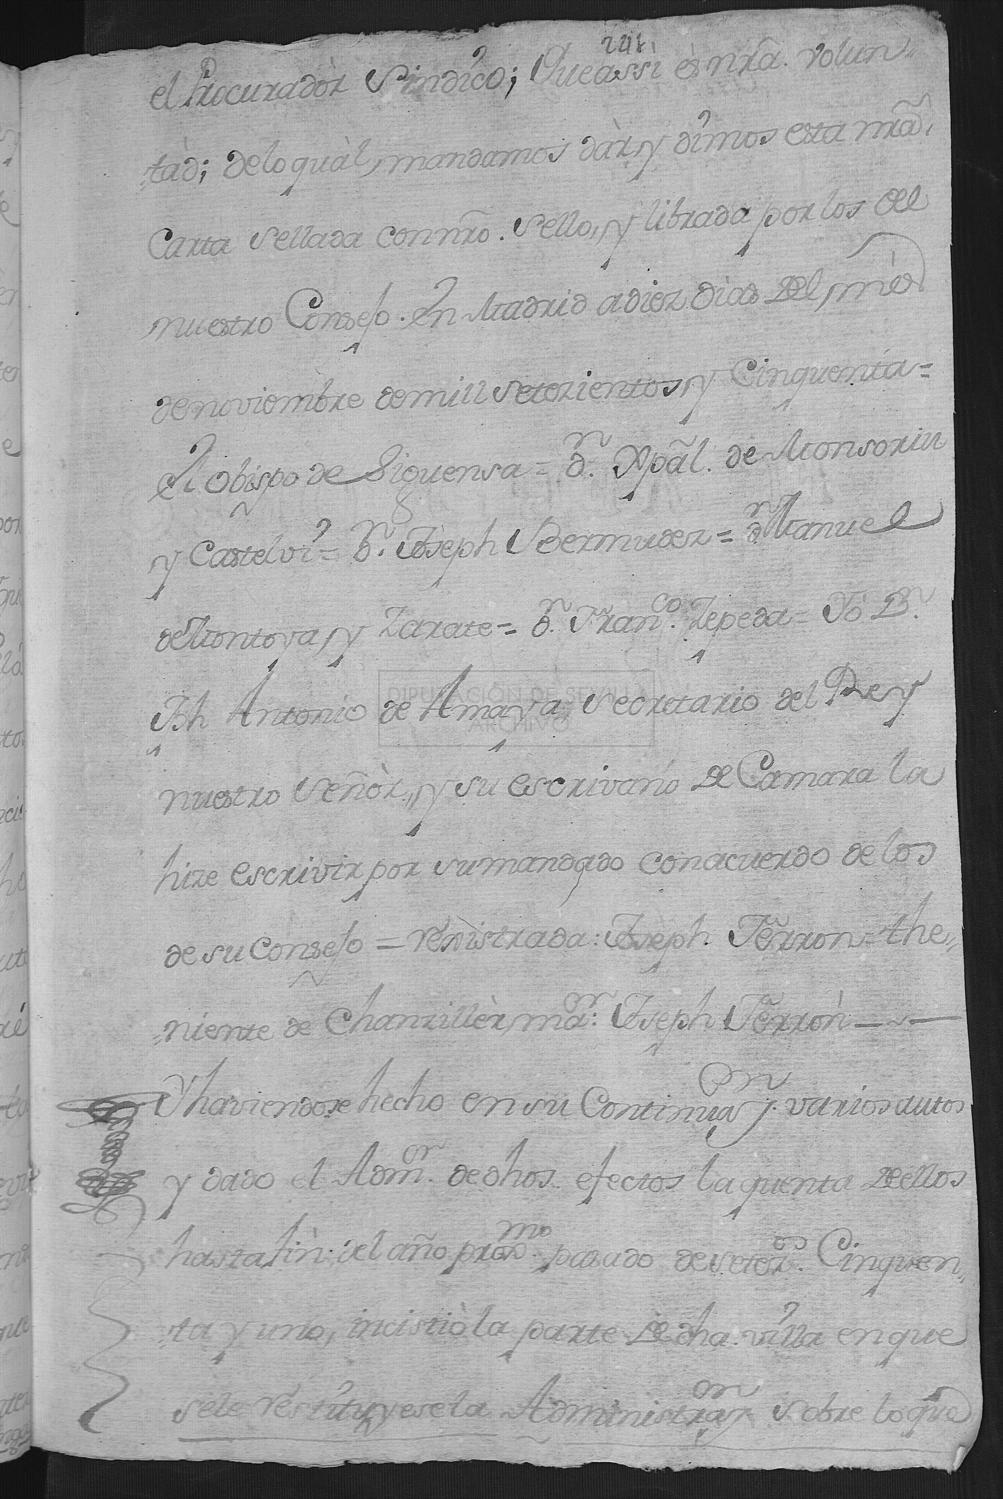 241
el Procuradòr Sindico; Que assi es nrã. volun
tàd; de lo quàl, mandamos dàr, y dimos esta nrã.
Carta sellada con nrõ. Sello, y librada por los del
nuestro Consejo. En Madrid a diez dias del mes
de noviembre de mill setezientos y Cinquenta=
El obispo de Siguensa= Dn. Xpãl. de Monsoriu
y Castelvi= Dn. Joseph Bermudez= Dn Manuel
de Montoya, y Zarate= Dn. Franco. Zepeda= Yo Dn.
Jph Antonio de Amaya, Secretario del Rey
nuestro Señòr, y su escrivano de Camara la
hize escrivir por su mandado con acuerdo de los
de su Consejo = rexistrada: Joseph. Ferron= the
niente de Chanzillèr, mor: Joseph Ferrón
DIPUTACIÓN DE SEVILLA
ARCHIVO
Y haviendose hecho en su Continuaon. varios autos
y dado el Admor. de dhos. efectos la quenta de ellos
hasta fin del año proxmo. pasado de setezos. Cinquen
ta y uno, incistiò la parte de dha. villa en que
se le restituyese la Administraon. sobre lo que